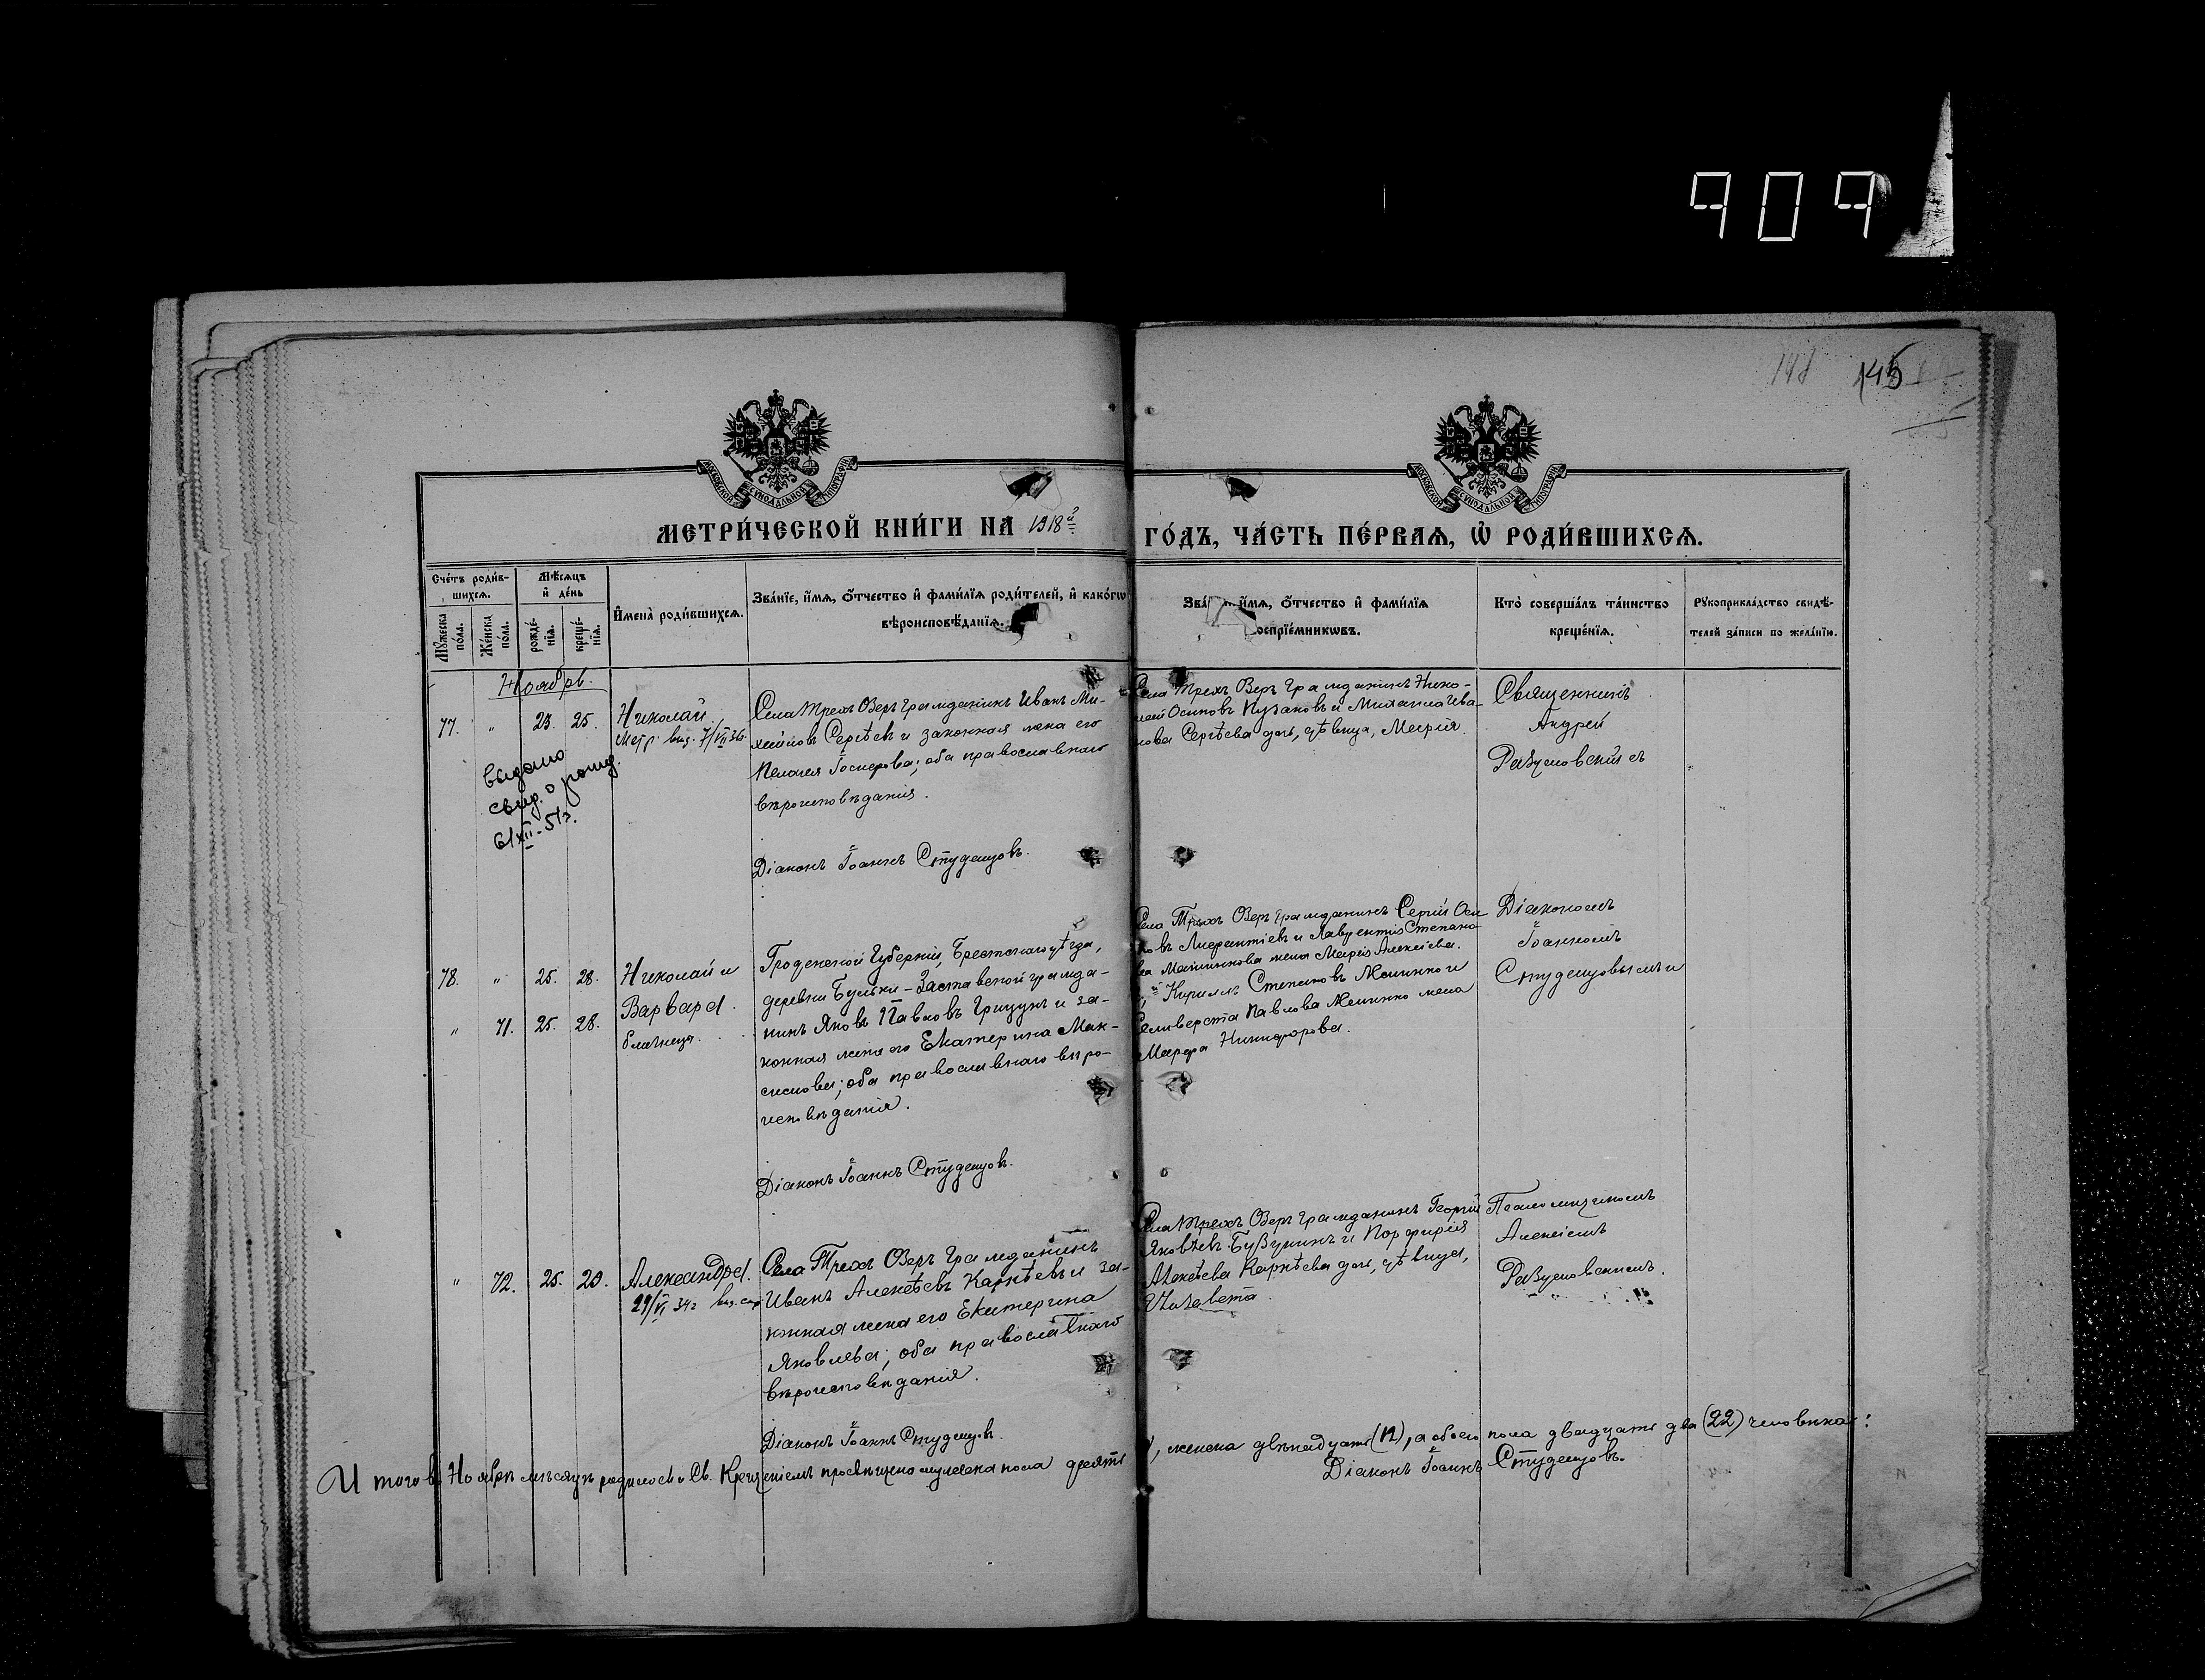 909
148 145
МОСКОВСКОЙ СѴНОДАЛЬНОЙ ТИПОГРАФІИ
МОСКОВСКОЙ СѴНОДАЛЬНОЙ ТИПОГРАФІИ
МЕТРИ́ЧЕСКОЙ КНИ́ГИ НА 1918й ГО́ДЪ, ЧА́СТЬ ПЕ́РВАѦ, Ѡ҆ РОДИ́ВШИХСѦ.
Сче́тъ роди́в-
шихсѧ.
Мꙋ́жеска
пола.
Же́нска
по́ла.
Мѣ́сѧцъ
и҆ де́нь
рожде́-
нїѧ.
креще́-
нїѧ.
И҆мена̀ роди́вшихсѧ.
Зва́нїе, и҆́мѧ, ѻ҆́тчество и҆ фами́лїѧ роди́телей, и҆ како́гѡ
вѣроисповѣ́данїѧ.
и҆́мѧ, ѻ҆́тчество и҆ фами́лїѧ
воспрїе́мникѡвъ.
Кто̀ соверша́лъ та́инство
креще́нїѧ.
Рꙋкоприкла́дство свидѣ́-
телей за́писи по жела́нїю.
Ноябрь.
77. " 23. 25.
Николай
Метр. выд. 7/VII 36г.
выдано
свид. о рожд.
6/XII-51г.
Села Трехъ Озеръ гражданинъ Иванъ Ми-
хайловъ Сергѣевъ и законная жена его
Пелагея; оба православнаго
вѣроисповѣданія.
Діаконъ Іоаннъ Студенцовъ.
Села Трехъ Озеръ гражданинъ Нико-
лай Осиповъ Пузаковъ и Михаила Ива-
нова Сергѣева дочь, дѣвица, Марія.
Священникъ
Андрей
Разумовскій съ
78. " 25. 28.
" 71. 25. 28.
Николай и
Варвара
близнецы.
Гродненской Губерніи, Брестскаго уѣзда,
деревни Бульки-Заставской гражда-
нинъ Яковъ Павловъ Грицукъ и за-
конная жена его Екатерина Мак-
симова; оба православнаго вѣро-
исповѣданія.
Діаконъ Іоаннъ Студенцовъ.
Села Трехъ Озеръ гражданинъ Сергій Оси-
повъ Лаврентіевъ и Лаврентія Степано-
ва жена Марія Алексѣева.
Кириллъ Степановъ и
Селиверста Павлова жена
Марфа Никифорова.
Діакономъ
Іоанномъ
Студенцовымъ и
" 72. 25. 29.
Александра.
29/VI 34г выд.
Села Трехъ Озеръ гражданинъ
Иванъ Алексѣевъ Карпѣевъ и за-
конная жена его Екатерина
Яковлева; оба православнаго
вѣроисповѣданія.
Діаконъ Іоаннъ Студенцовъ.
Села Трехъ Озеръ гражданинъ Георгій
Яковлевъ и Порфирія
Алексѣева Карпѣева дочь, дѣвица,
Елизавета.
Псаломщикомъ
Алексіемъ
Разумовскимъ.
И того въ Ноябрѣ мѣсяцѣ родилось и Св. Крещеніемъ просвѣщено мужеска пола десять, женска двѣнадцать (12), а обоего пола двадцать два (22) человѣка:
Діаконъ Іоаннъ Студенцовъ.